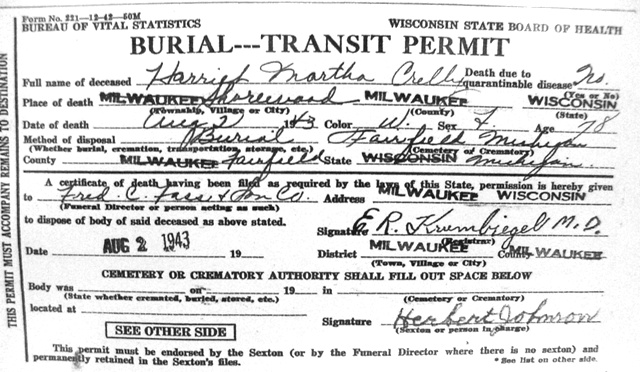 Form No. 221-12-42-50M
BUREAU OF VITAL STATISTICS WISCONSIN STATE BOARD OF HEALTH
BURIAL---TRANSIT PERMIT
Full name of deceased Harriet Martha Crelly Death due to quarantinable disease? No.
(Yes or No)
Place of death MILWAUKEE Shorewood MILWAUKEE WISCONSIN
(Township, Village or City) (County) (State)
Date of death Aug 2 1943 Color W. Sex F. Age 78
Method of disposal Burial Fairfield Michigan
(Whether burial, cremation, transportation, storage, etc.) (Cemetery or Crematory)
County MILWAUKEE Fairfield State WISCONSIN Michigan
A certificate of death having been filed as required by the laws of this State, permission is hereby given
to Fred C. & Son Co. Address MILWAUKEE WISCONSIN
(Funeral Director or person acting as such)
to dispose of body of said deceased as above stated. Signature E. R. Krumbiegel M.D.
(Registrar)
Date AUG 2 1943 19 District MILWAUKEE County MILWAUKEE
(Town, City or Village)
CEMETERY OR CREMATORY AUTHORITY SHALL FILL OUT SPACE BELOW
Body was on 19 in
(State whether cremated, buried, stored, etc.) (Cemetery or Crematory)
located at Signature Herbert Johnson
(Sexton or person in charge)
SEE OTHER SIDE
This permit must be endorsed by the Sexton (or by the Funeral Director where there is no sexton) and
permanently retained in the Sexton's files. * See list on other side.
THIS PERMIT MUST ACCOMPANY REMAINS TO DESTINATION